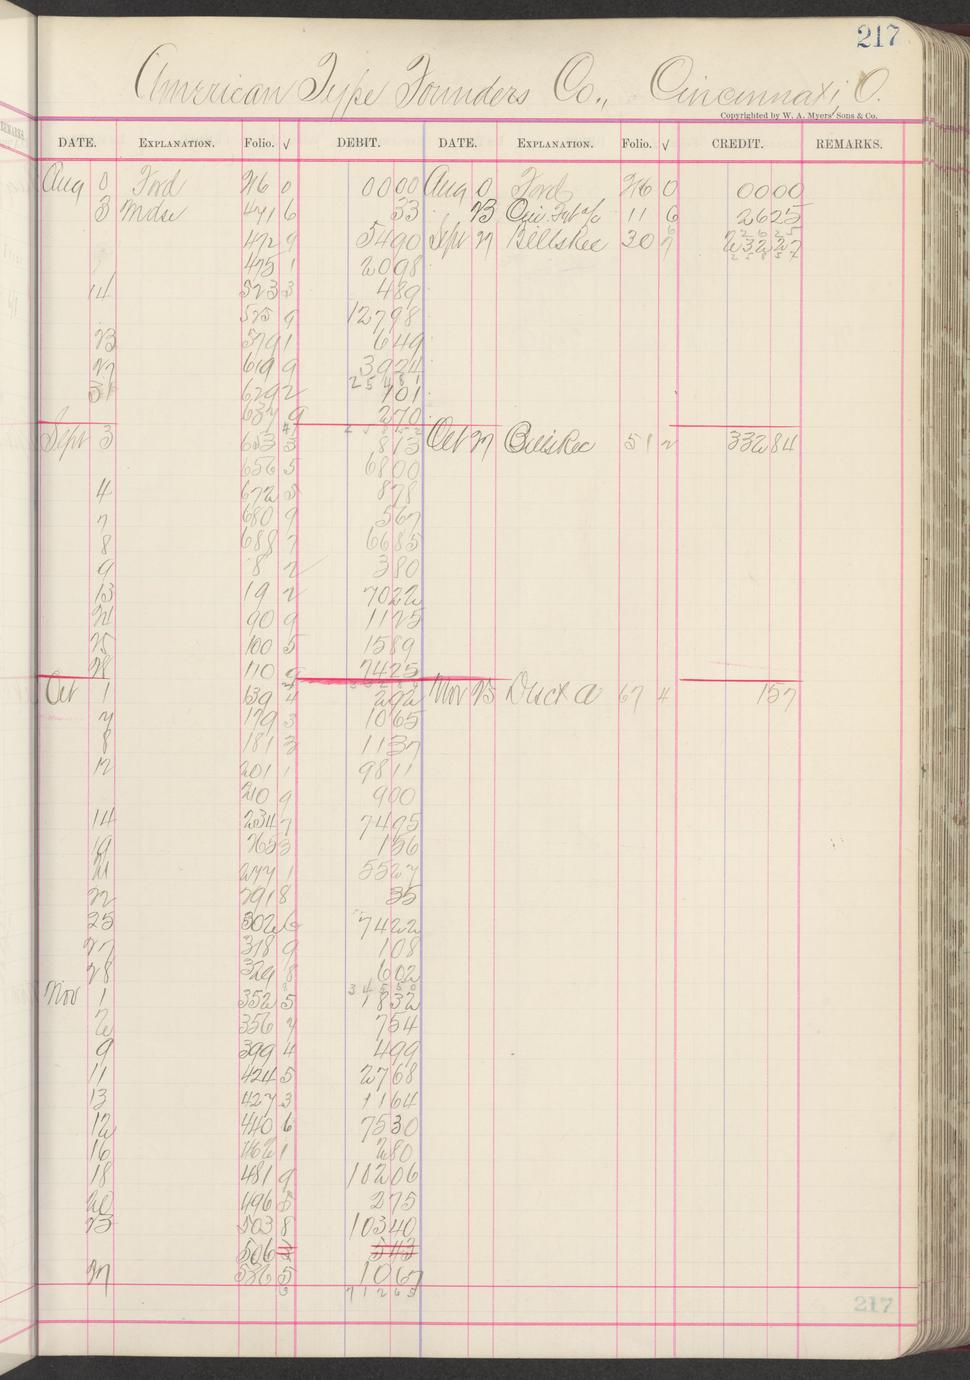 217
American Type Founders Co., Cincinnati, O.
Copyrighted by W. A. Myers' Sons & Co.
DATE. EXPLANATION. Folio. √ DEBIT. DATE. EXPLANATION. Folio. √ CREDIT. REMARKS.
Aug 0 Ford 216 0 0000 Aug 0 Ford 216 0 0000
3 Mdse 471 6 33 23 11 6 2625
472 9 5490 Sept 27 Bills Rec 30 7 23227
475 1 2098
14 523 3 489
525 9 12798
23 579 1 649
27 619 9 3924
31 629 2 101
637 9 270
Sept 3 653 3 813 Oct 27 Bills Rec 51 2 33284
656 5 6800
4 672 5 878
7 680 9 567
8 688 7 6685
9 8 2 380
13 19 2 7022
21 90 9 1125
25 100 5 1589
28 110 9 7425
Oct 1 139 4 292 Nov 23 67 4 157
7 179 3 1065
8 181 3 1137
12 201 1 9811
210 9 900
14 234 7 7495
19 265 3 156
21 277 1 5527
22 291 8 35
25 302 6 7422
27 318 9 108
28 329 8 602
34550
Nov 1 352 5 1832
2 356 7 754
9 399 4 499
11 424 5 2768
13 427 3 1164
12 440 6 7530
16 462 1 280
18 481 9 10206
20 496 5 275
23 503 8 10340
506 543
27 526 5 1067
6 71265
217